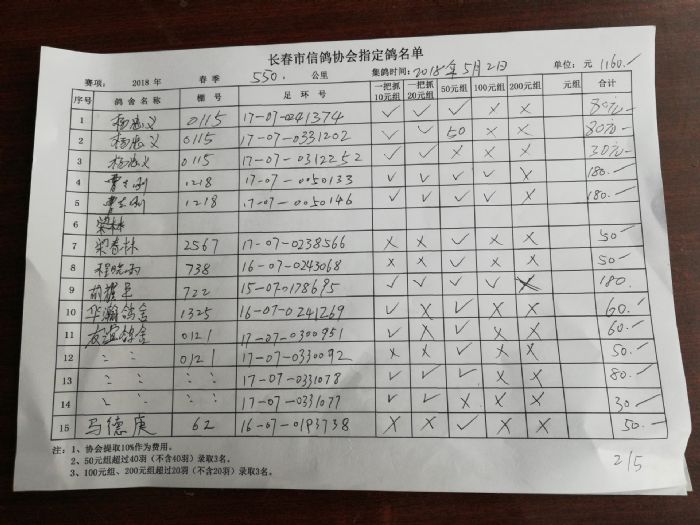 长春市信鸽协会指定鸽名单
赛项： 2018 年 春 季 550. 公里 集鸽时间：2018年5月2日 单位： 元 1160.
序号 鸽 舍 名 称 棚 号 足 环 号 一把抓10元组 一把抓20元组 50元组 100元组 200元组 元组 合计
1 杨忠义 0115 17-07-0241374 ✓ ✓ ✓ × × 80元
2 杨忠义 0115 17-07-0331202 ✓ ✓ 50 × × 80元
3 杨忠义 0115 17-07-0312252 ✓ ✓ × × × 30元
4 1218 17-07-0050133 ✓ ✓ ✓ ✓ × 180.
5 1218 17-07-0050146 ✓ ✓ ✓ ✓ × 180.
6 梁林
7 梁春林 2567 17-07-0238566 × × ✓ × × 50
8 程晓 738 16-07-0243068 × × ✓ × × 50
9 722 15-07-0178695 ✓ ✓ ✓ ✓ × 180
10 华瀚鸽舍 1325 16-07-0241269 ✓ × ✓ × × 60.
11 友谊鸽舍 0121 17-07-0300951 ✓ × ✓ × × 60.
12 〃 〃 0121 17-07-0330092 × × ✓ × × 50.
13 〃 〃 17-07-0331078 ✓ ✓ ✓ × × 80.
14 〃 〃 17-07-0331077 ✓ ✓ × × × 30
15 马德庚 62 16-07-0193738 × × ✓ × × 50.
注： 1、协会提取10%作为费用。
2、50元组超过40羽（不含40羽）录取3名。
3、100元组、200元组超过20羽（不含20羽）录取3名。
2/5